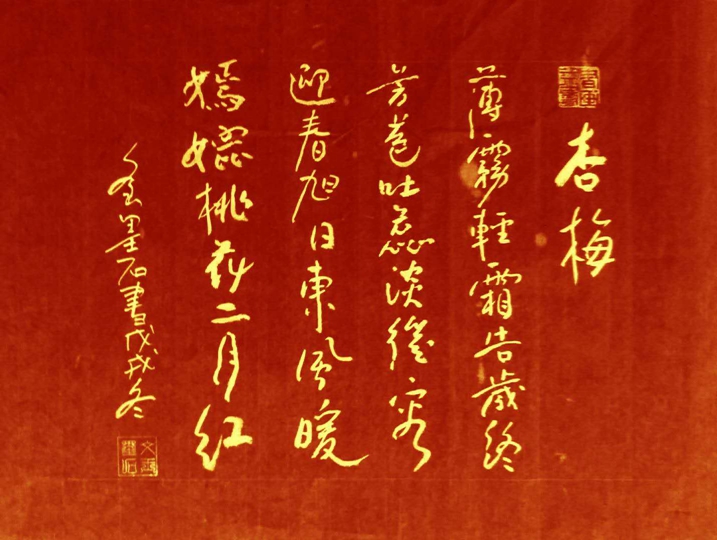 杏梅
薄霧輕霜告歲終
芳苞吐蕊淡從容
迎春旭日東風暖
嫣嫋桃花二月紅
墨石書戊戌冬